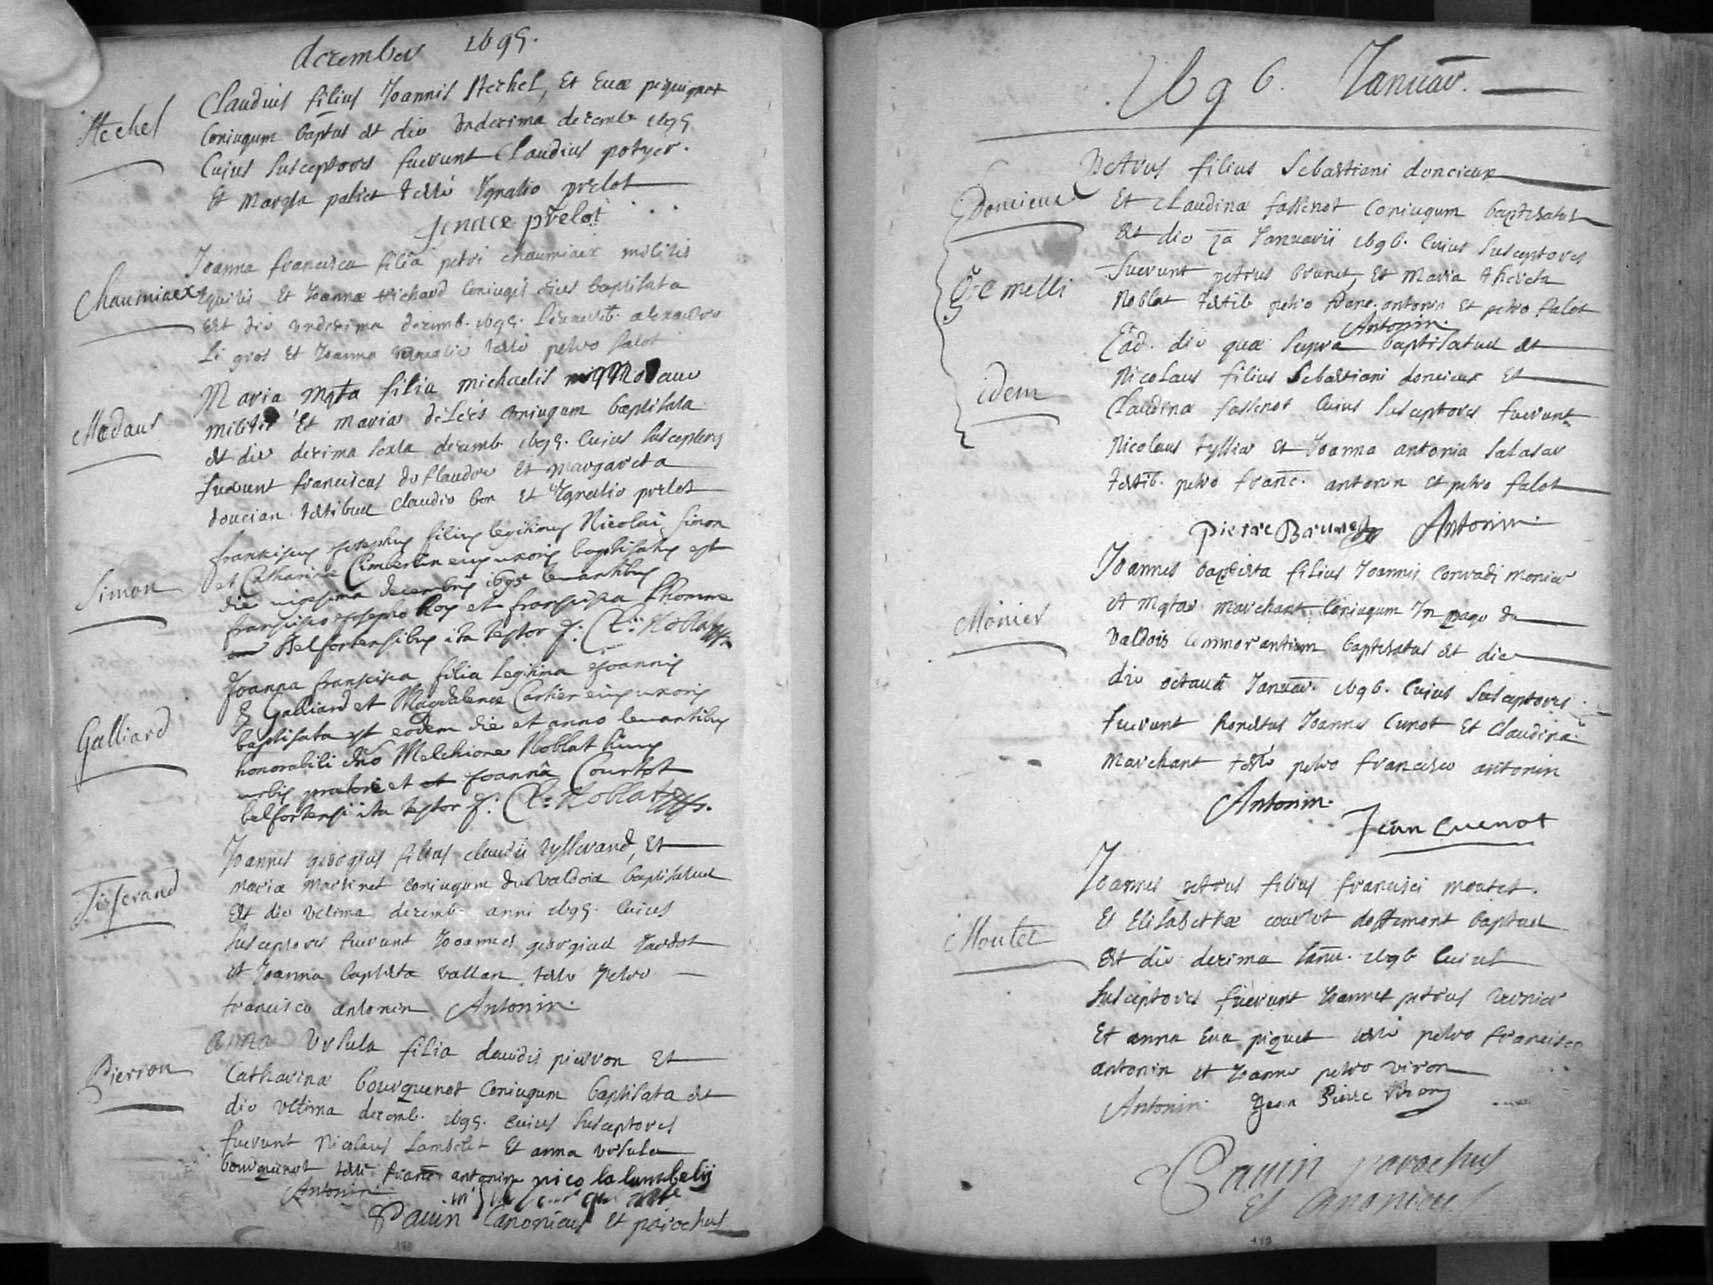 december 1695.
Stechel
Claudius filius Joannis Stechel, et Evæ
Coniugum baptus est die undecima decemb 1695
Cuius susceptores fuerunt Claudius potyer.
Et Margta teste Ignatio prelot
Jgnace prelot
Chaumiaex
Joanna francisca filia petri chaumiaex militis
Equitis Et Joannæ Richard Coniugis eius baptisata
est die undecima decemb. 1695. alexandro
Li gros Et Joanna teste petro falot
Madaus
Maria Mgta filia michaelis
militis Et Mariæ Coniugum baptisata
est die decima sexta decemb 1695. Cuius susceptores
fuerunt franciscus du flandre Et Margareta
doncian testibus Claudio bon Et Ignatio prelot
Simon
franciscus Josephus filius legitimus Nicolai Simon
et Catharinæ Cimberlin eius uxoris baptisatus est
die vigesima decembris 1695 levantibus
francisco Josepho Roy et francisca Lhomme
Belfortensibus ita testor f: C: Noblat
Galliard
Joanna francisca filia Legitima Joannis
Galliard et Magdalenæ Cartier eius uxoris
baptisata est eodem die et anno levantibus
honorabili dno Melchiore Noblat huius
urbis prætore et et Joannâ Courtot
belfortensi ita testor f: C: Noblat
Tisserand
Joannes georgius filius claudii tysserand, Et
mariæ martinet coniugum du Valdoie baptisatus
Est die Vltima decemb. anni 1695. Cuius
susceptores fuerunt Joannes georgius tardot
et Joanna baptista vallan teste petro
francisco antonin Antonin.
Pierron
anna Ursula filia davidis pierron Et
Catharinæ bourquenot Coniugum baptisata est
die ultima decemb. 1695. Cuius susceptores
fuerunt Nicolaus Lambelet Et anna ursula
bourquenot teste franc antonin nico la lambelij
Antonin
Pauin Canonicus Et parochus
1696. Januar.
Doncieux
Petrus filius Sebastiani doncieux
Et claudinæ fassenot Coniugum baptisatus
Est die 7a Januarii 1696. Cuius susceptores
fuerunt petrus brunet, Et Maria theresa
Noblat testib petro franc. antonin Et petro falot
Antonin.
Gemelli
Ead. die quæ supra baptisatus est
idem
Nicolaus filius Sebastiani doncieux Et
Claudinæ fassenot Cuius susceptores fuerunt
Nicolaus tyssia Et Joanna antonia salasar
testib. petro franc. antonin Et petro falot
Pierre Brunet Antonin.
Monier
Joannes baptista filius Joannis Conradi monier
Et Mgtæ marchant Coniugum In pago de
Valdois Commorantium baptisatus est die
die octavâ Januar. 1696. Cuius susceptores
fuerunt honestus Joannes Cunot Et Claudina
Marchant teste petro francisco antonin
Antonin.
Jean Cuenot
Moutet
Joannes petrus filius francisci moutet.
Et Elisabethæ courtot doffemont baptus
Est die decima Janu. 1696 Cuius
susceptores fuerunt Joannes petrus vernier
Et anna Eva piquet teste petro francisco
antonin Et Joanne petro viron
Antonin Jean Pierre Viron
Pauin parochus
Et Canonicus